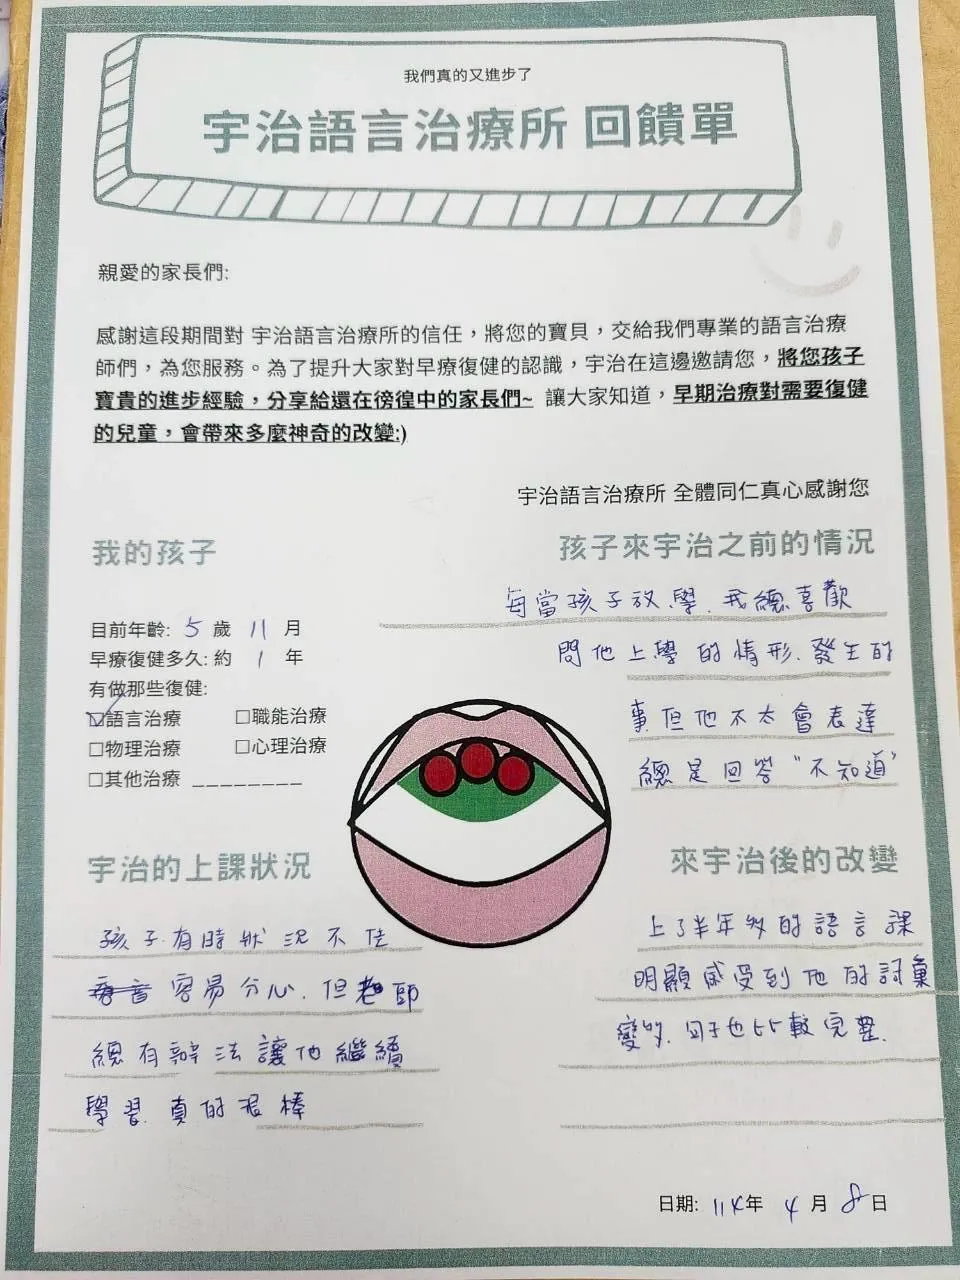 我們真的又進步了
宇治語言治療所 回饋單
親愛的家長們:
感謝這段期間對 宇治語言治療所的信任，將您的寶貝，交給我們專業的語言治療
師們，為您服務。為了提升大家對早療復健的認識，宇治在這邊邀請您，將您孩子
寶貴的進步經驗，分享給還在徬徨中的家長們~ 讓大家知道，早期治療對需要復健
的兒童，會帶來多麼神奇的改變:)
宇治語言治療所 全體同仁真心感謝您
我的孩子
目前年齡: 5 歲 11 月
早療復健多久: 約 1 年
有做那些復健:
☑語言治療 □職能治療
□物理治療 □心理治療
□其他治療 _________
孩子來宇治之前的情況
每當孩子放學，我總喜歡
問他上學的情形，發生的
事但他不太會表達
總是回答"不知道"
宇治的上課狀況
孩子有時狀況不佳
容易分心，但老師
總有辦法讓他繼續
學習，真的很棒
來宇治後的改變
上了半年多的語言課
明顯感受到他的詞彙
變多，句子也比較完整。
日期: 114年 4 月 8 日